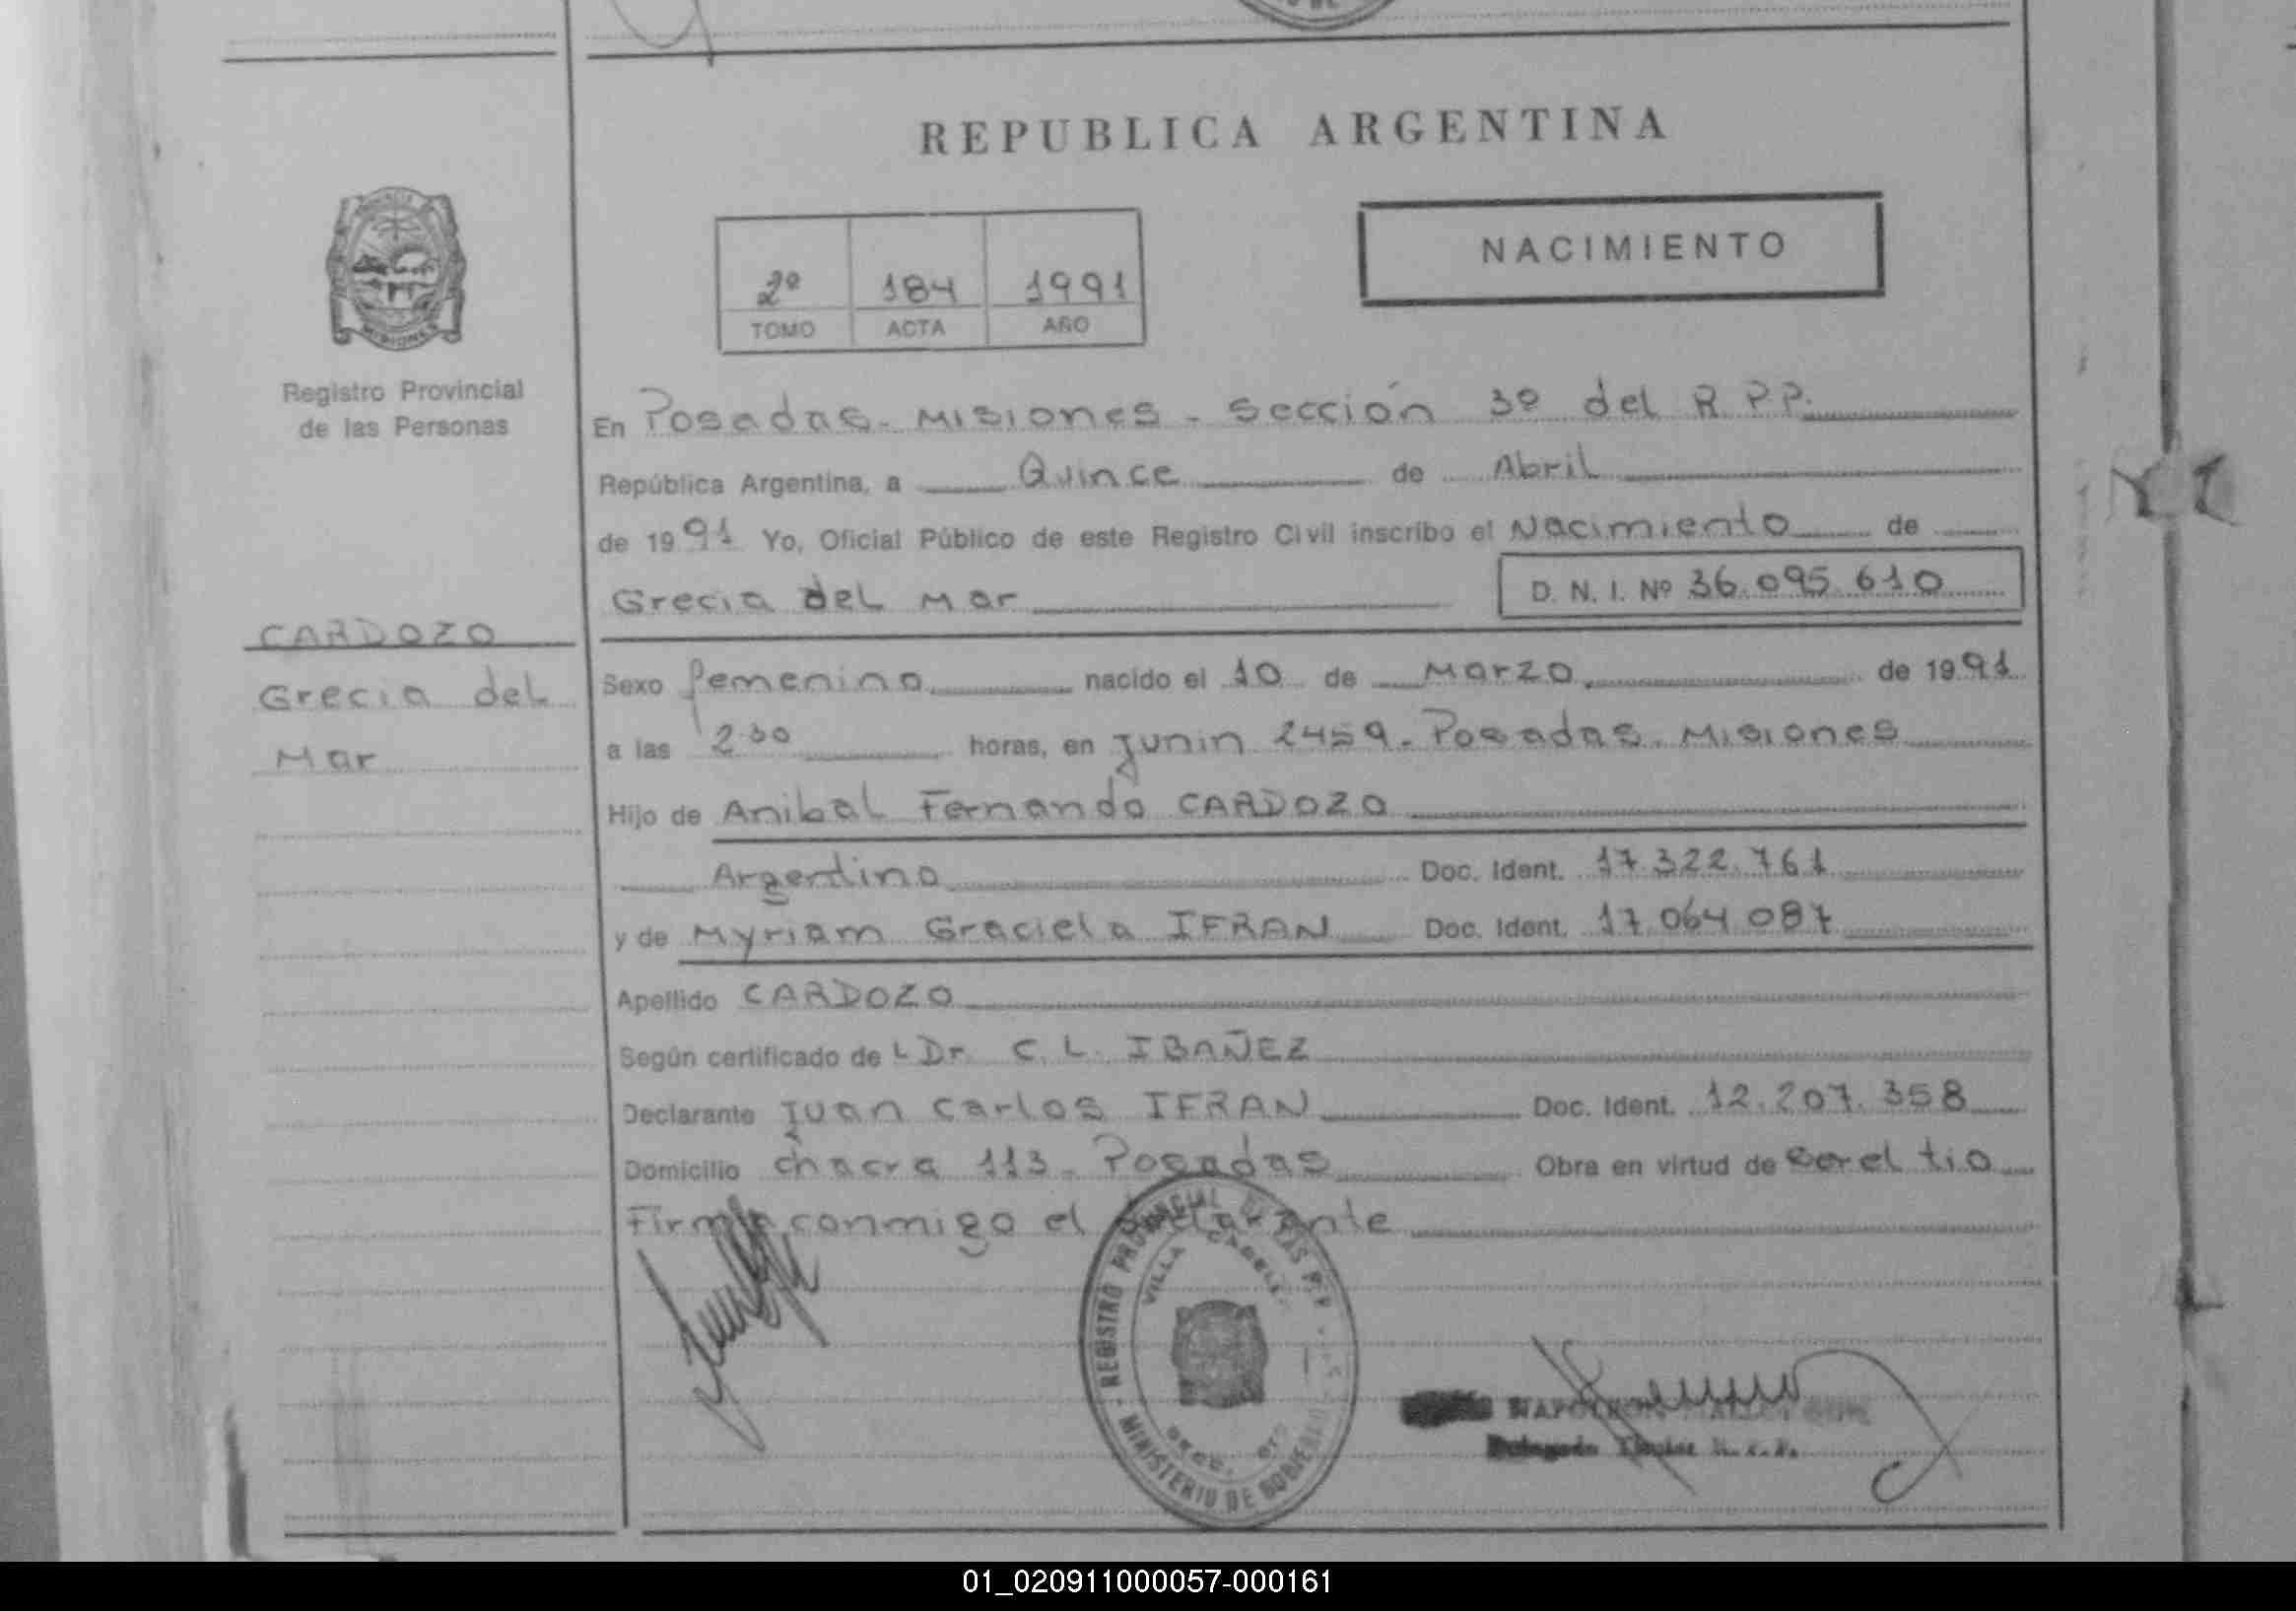 REPUBLICA ARGENTINA
NACIMIENTO
2º 184 1991
TOMO ACTA AÑO
MISIONES
Registro Provincial
de las Personas
CARDOZO
Grecia del
Mar
En Posadas - Misiones - Sección 3º del R.P.P.
República Argentina, a Quince de Abril
de 1991 Yo, Oficial Público de este Registro Civil inscribo el Nacimiento de
Grecia del Mar D. N. I. Nº 36.095.610
Sexo femenino nacido el 10 de Marzo de 1991
a las 2:30 horas, en Junin 2459 - Posadas - Misiones
Hijo de Anibal Fernando CARDOZO
Argentino Doc. Ident. 17.322.761
y de Myriam Graciela IFRAN Doc. Ident. 17.064.087
Apellido CARDOZO
Según certificado de L Dr. C. L. IBAÑEZ
Declarante Juan Carlos IFRAN Doc. Ident. 12.207.358
Domicilio chacra 113 - Posadas Obra en virtud de ser el tio
Firma conmigo el declarante
REGISTRO PROVINCIAL DE LAS PER
VILLA CABELL
MINISTERIO DE GOBIERNO
01_020911000057-000161